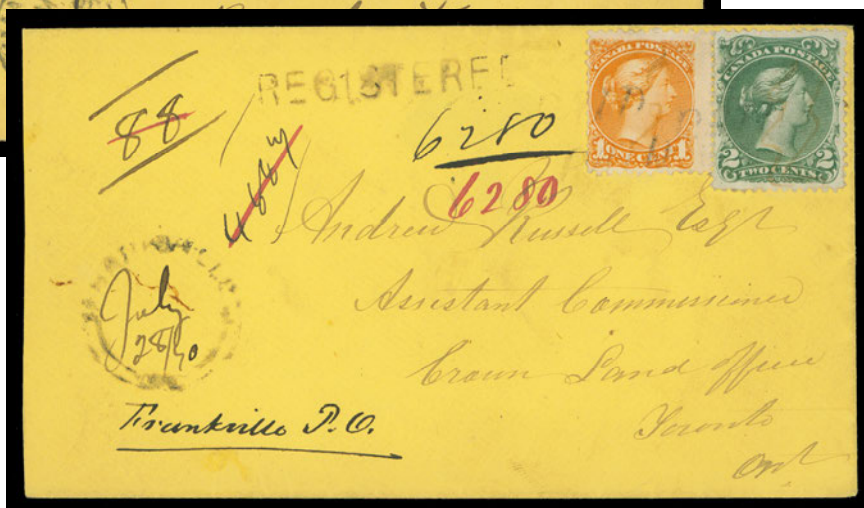 REGISTERED
88
6280
6280
CANADA POSTAGE
1 ONE CENT 1
CANADA POSTAGE
2 TWO CENTS 2
Andrew Russell Esqr
Assistant Commissioner
Crown Land Office
Toronto
Ont
July
28/70
Frankville P.O.